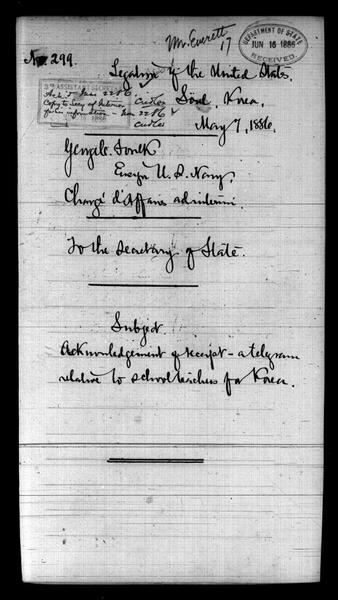 Mr Everett
17
DEPARTMENT OF STATE
JUN 16 1886
RECEIVED
No. 299.
Legation of the United States.
Söul, Korea,
May 7, 1886.
3RD ASSISTANT SECRETARY
Ack'd June 22 86
Copy to Secy of Interior
for information - June 22 86
George C. Foulk
Ensign U. S. Navy,
Chargé d'Affaires ad interim.
To the Secretary of State.
Subject
Acknowledgement of receipt - a telegram
relative to school teachers for Korea.